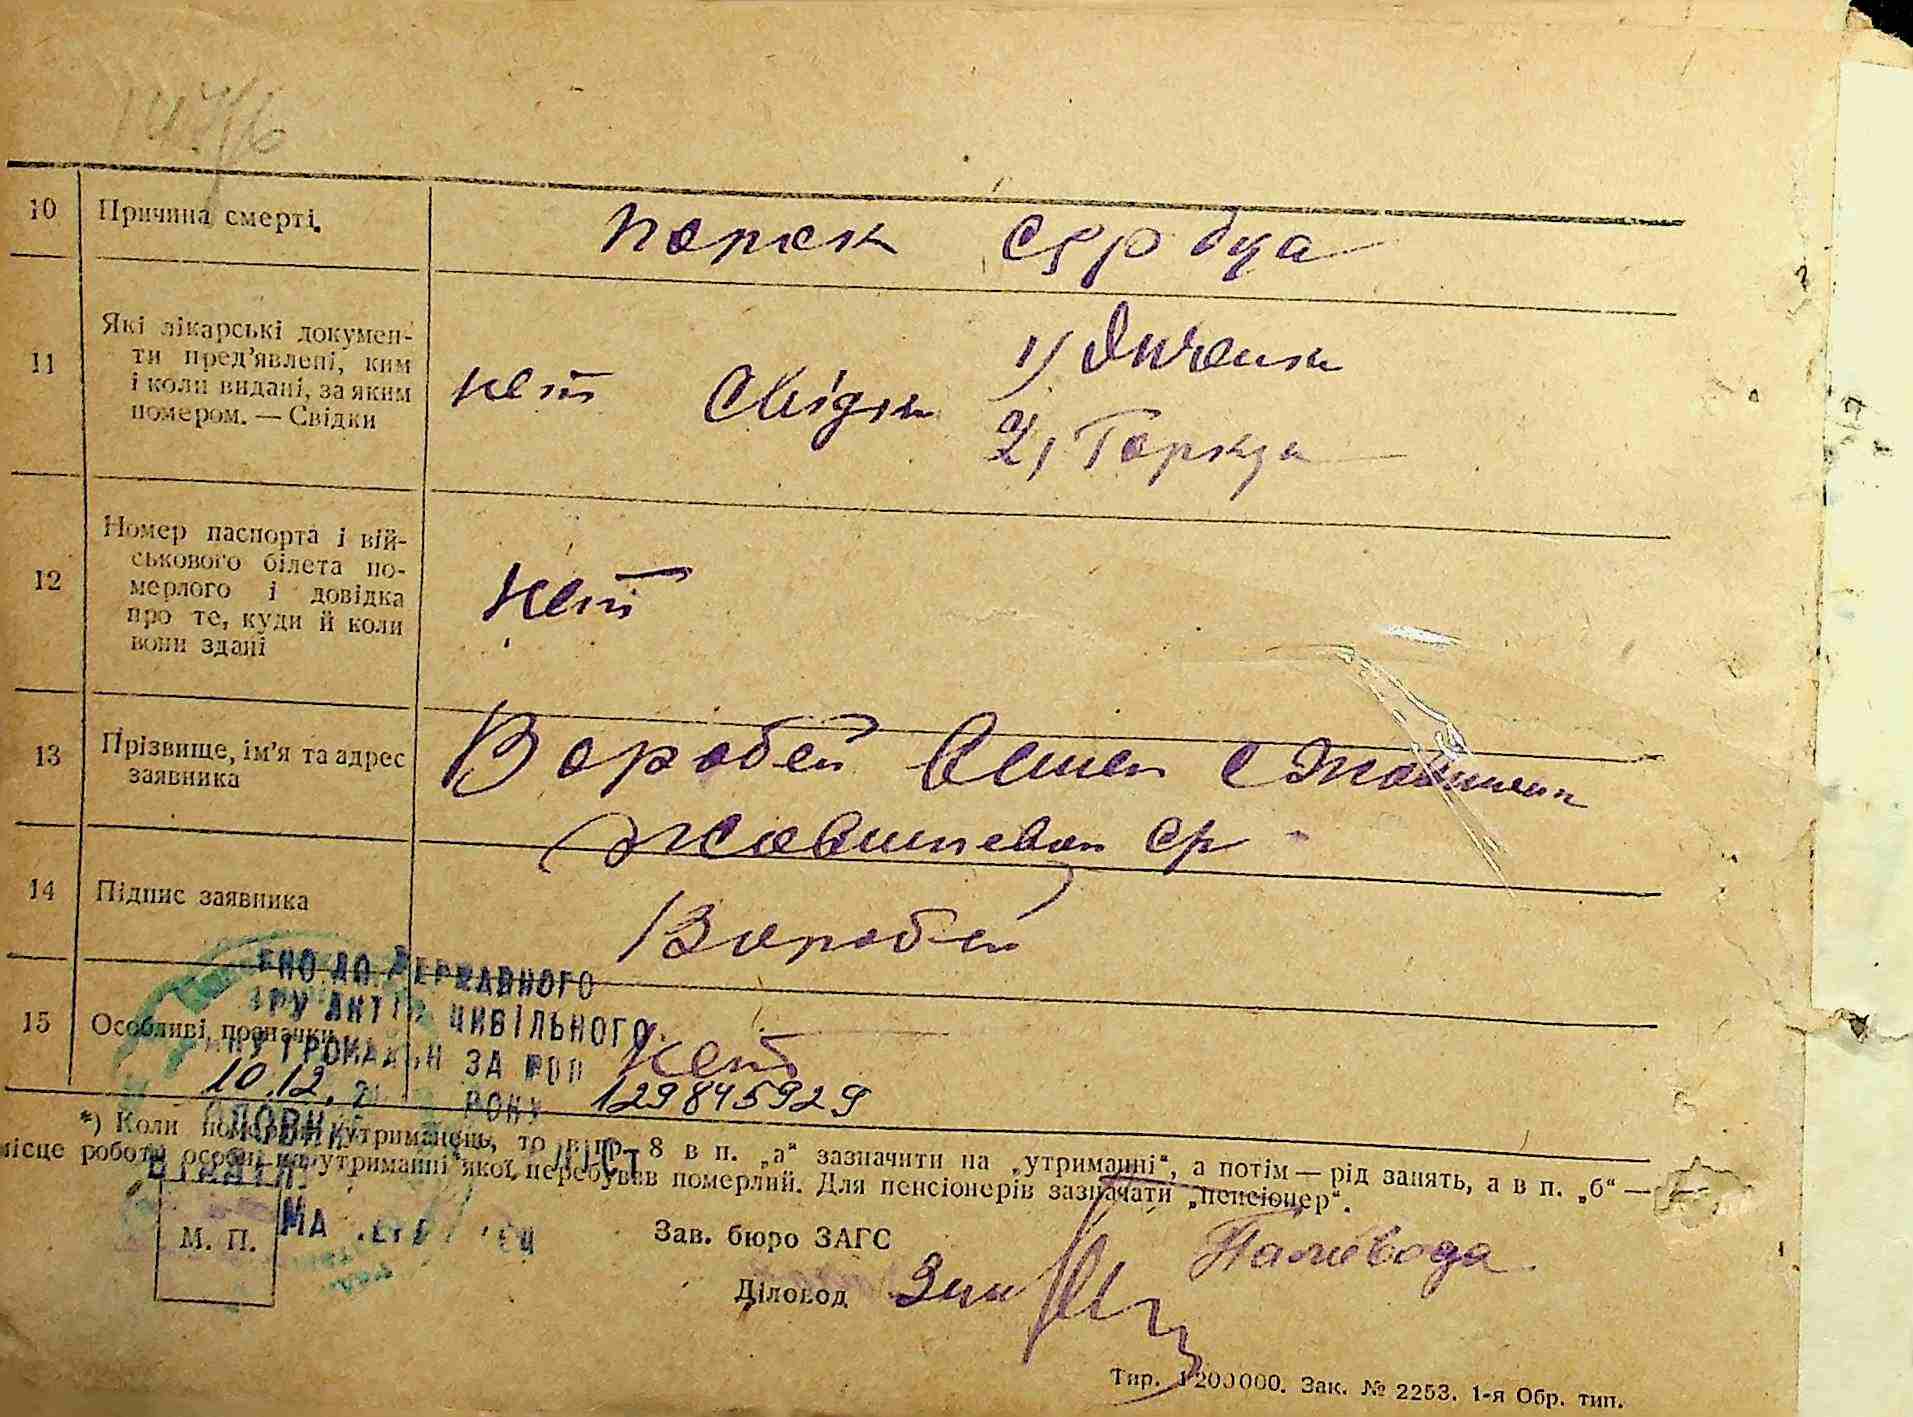 147/6
10 Причина смерті. порок сердца
11 Які лікарські докумен-
ти пред'явлені, ким
і коли видані, за яким
номером. — Свідки
нет Свідки 1)
2)
12 Номер паспорта і вій-
ськового білета по-
мерлого і довідка
про те, куди й коли
вони здані
нет
13 Прізвище, ім'я та адрес
заявника
Воробей Семен с
14 Підпис заявника
Воробей
15 Особливі позначки
нет
ЕНО ДО ДЕРЖАВНОГО
ЦИВІЛЬНОГО
ГРОМАДЯН ЗА
10.12. РОКУ 129845929
*) Коли померлий утриманець, то в пр. 8 в п. „а“ зазначити на „утриманні“, а потім — рід занять, а в п. „б“ —
місце роботи особи, на утриманні якої перебував померлий. Для пенсіонерів зазначати „пенсіонер“.
М. П.
Зав. бюро ЗАГС Паливода
Діловод
Тир. 1200000. Зак. № 2253. 1-я Обр. тип.